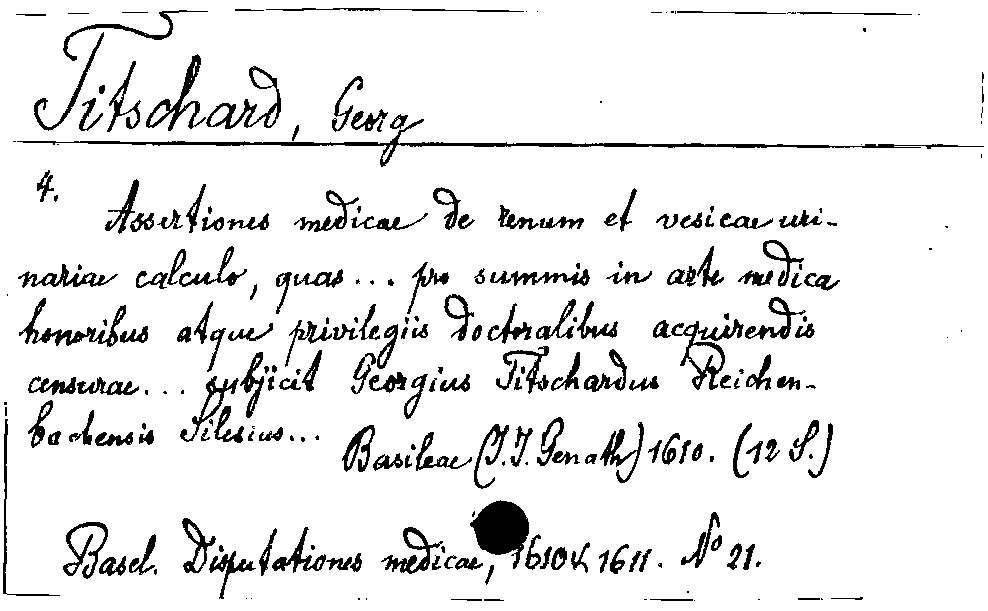 Titschard, Georg
4.
Assertiones medicae de renum et vesicae uri-
nariae calculo, quas... pro summis in arte medica
honoribus atque privilegiis doctoralibus acquirendis
censurae... subjicit Georgius Titschardus Reichen-
bachensis Silesius...
Basileae (J. J. Genath) 1610. (12 S.)
Basel. Disputationes medicae, 1610 & 1611. No 21.